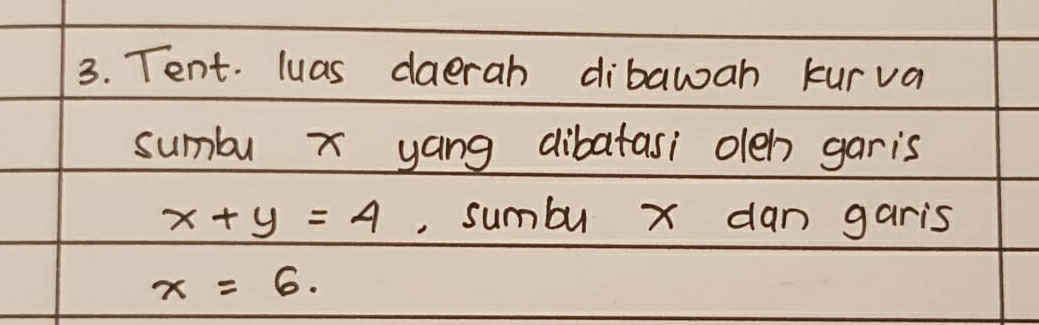 3. Tent. luas daerah dibawah kurva
sumbu x yang dibatasi oleh garis
x + y = 4 , sumbu x dan garis
x = 6.